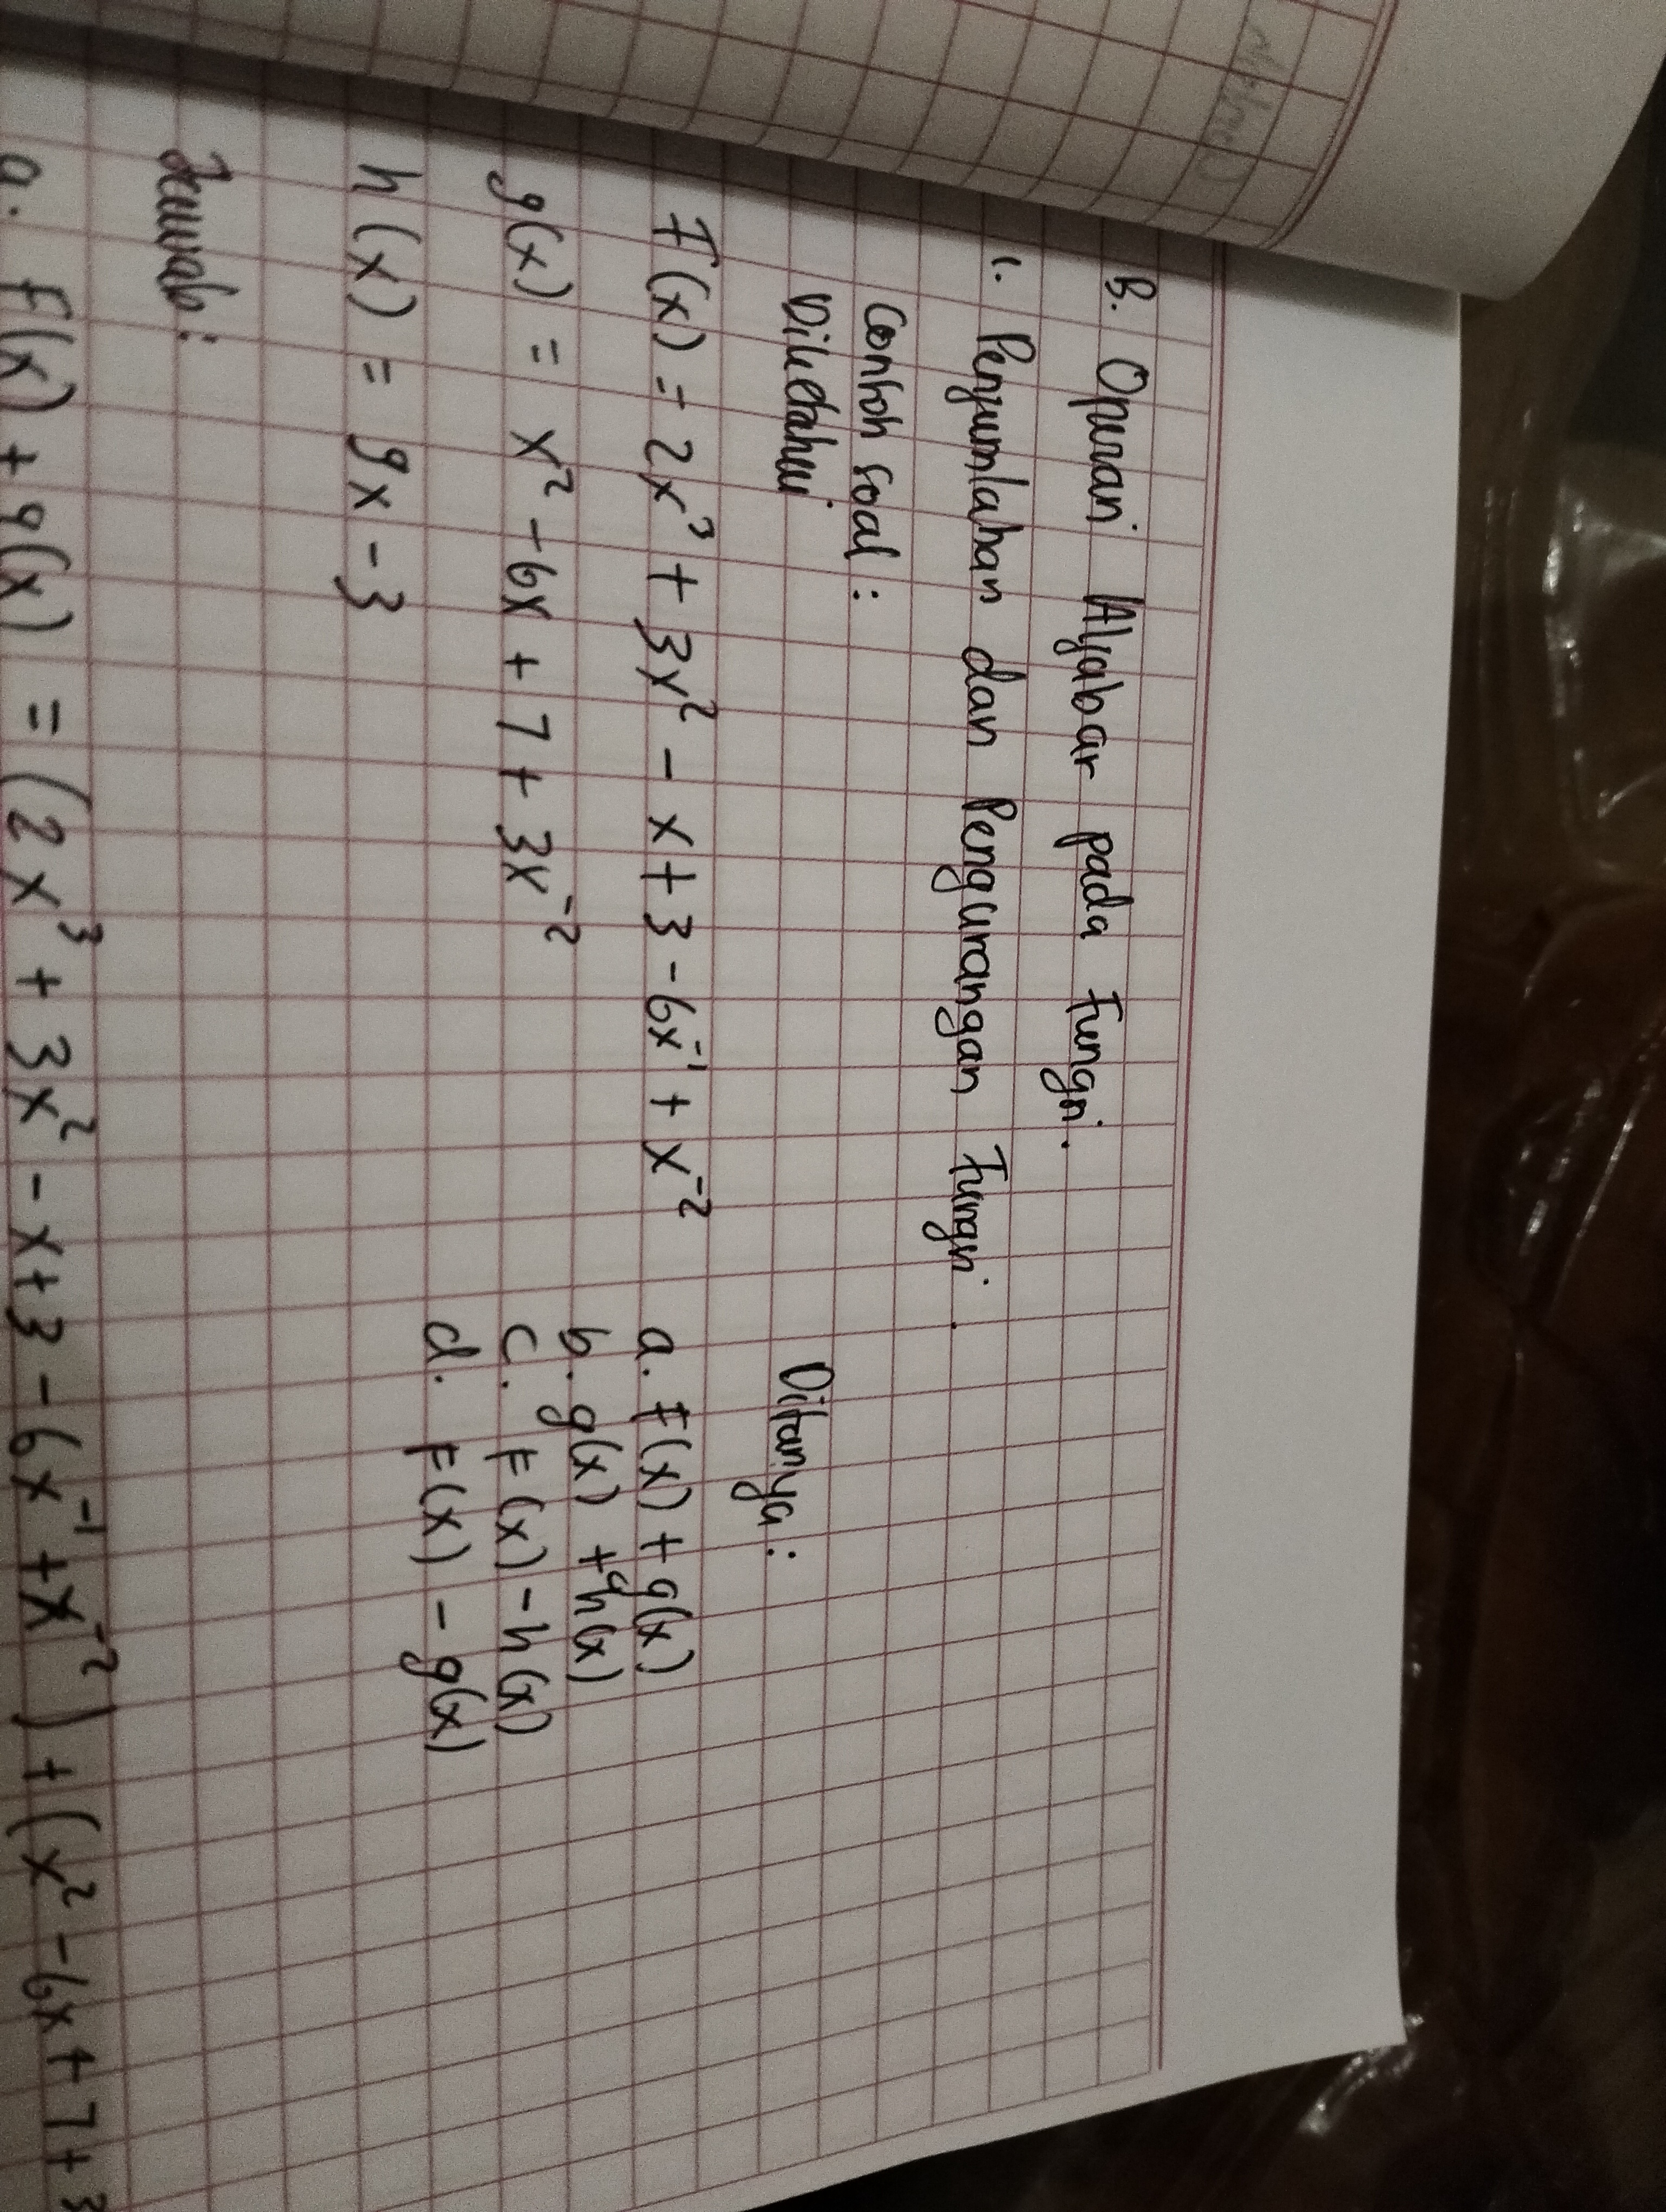 B. Operasi Aljabar pada Fungsi.
1. Penjumlahan dan Pengurangan Fungsi.
Contoh soal :
Diketahui
Ditanya :
F(x) = 2x³ + 3x² - x + 3 - 6x⁻¹ + x⁻²
a. F(x) + g(x)
g(x) = x² - 6x + 7 + 3x⁻²
b. g(x) + h(x)
c. F(x) - h(x)
h(x) = 9x - 3
d. F(x) - g(x)
Jawab :
a. F(x) + g(x) = (2x³ + 3x² - x + 3 - 6x⁻¹ + x⁻²) + (x² - 6x + 7 + 3